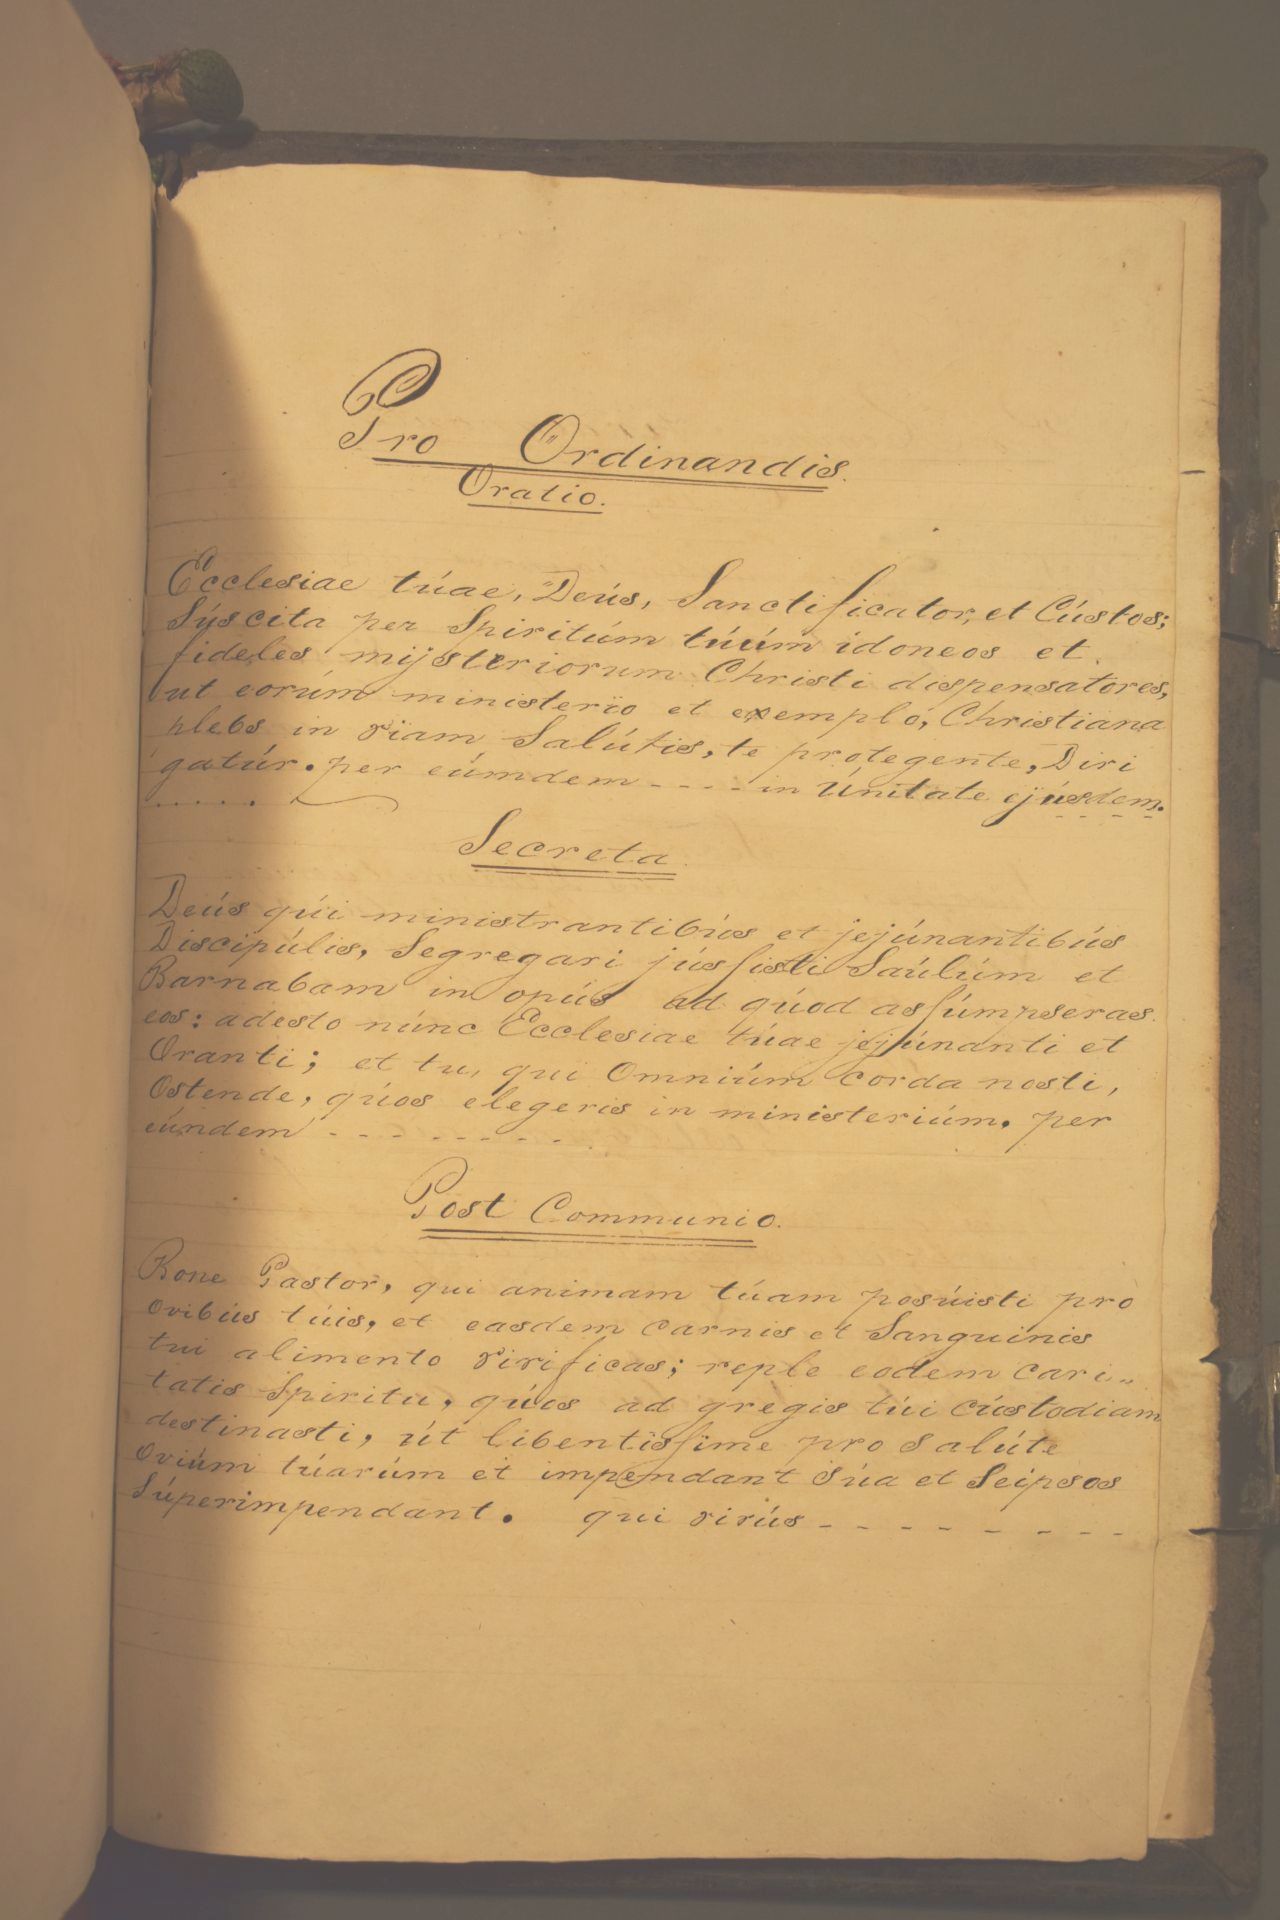 Pro Ordinandis.
Oratio.
Ecclesiae túae, Deús, Sanctificator, et Cústos;
Súscita per Spiritúm túúm idoneos et
fideles mijsteriorum Christi dispensatores,
ut eorúm ministerio et exemplo, Christiana
plebs in viam Salútis, te protegente, Diri
gatúr. per eúmdem - - - - in Únitate ejúsdem.
Secreta.
Deús qúi ministrantibús et jejúnantibús
Discipúlis, Segregari júsfisti Saúlúm et
Barnabam in opús ad qúod asfúmpseras
eos: adesto núnc Ecclesiae túae jejúnanti et
Oranti; et tu, qui Omniúm corda nosti,
Ostende, qúos elegeris in ministeriúm. per
eúndem - - - - - - - -
Post Communio.
Bone Pastor, qui animam túam posúisti pro
Ovibús túis, et easdem carnis et Sanguinis
tui alimento vivificas; reple eodem cari„
tatis Spiritu, qúos ad gregis túi cústodiam
destinasti, út libentisfime pro Salúte
Oviúm túarúm et impendant Súa et Seipsos
Súperimpendant. qui vivús - - - - - - - - -